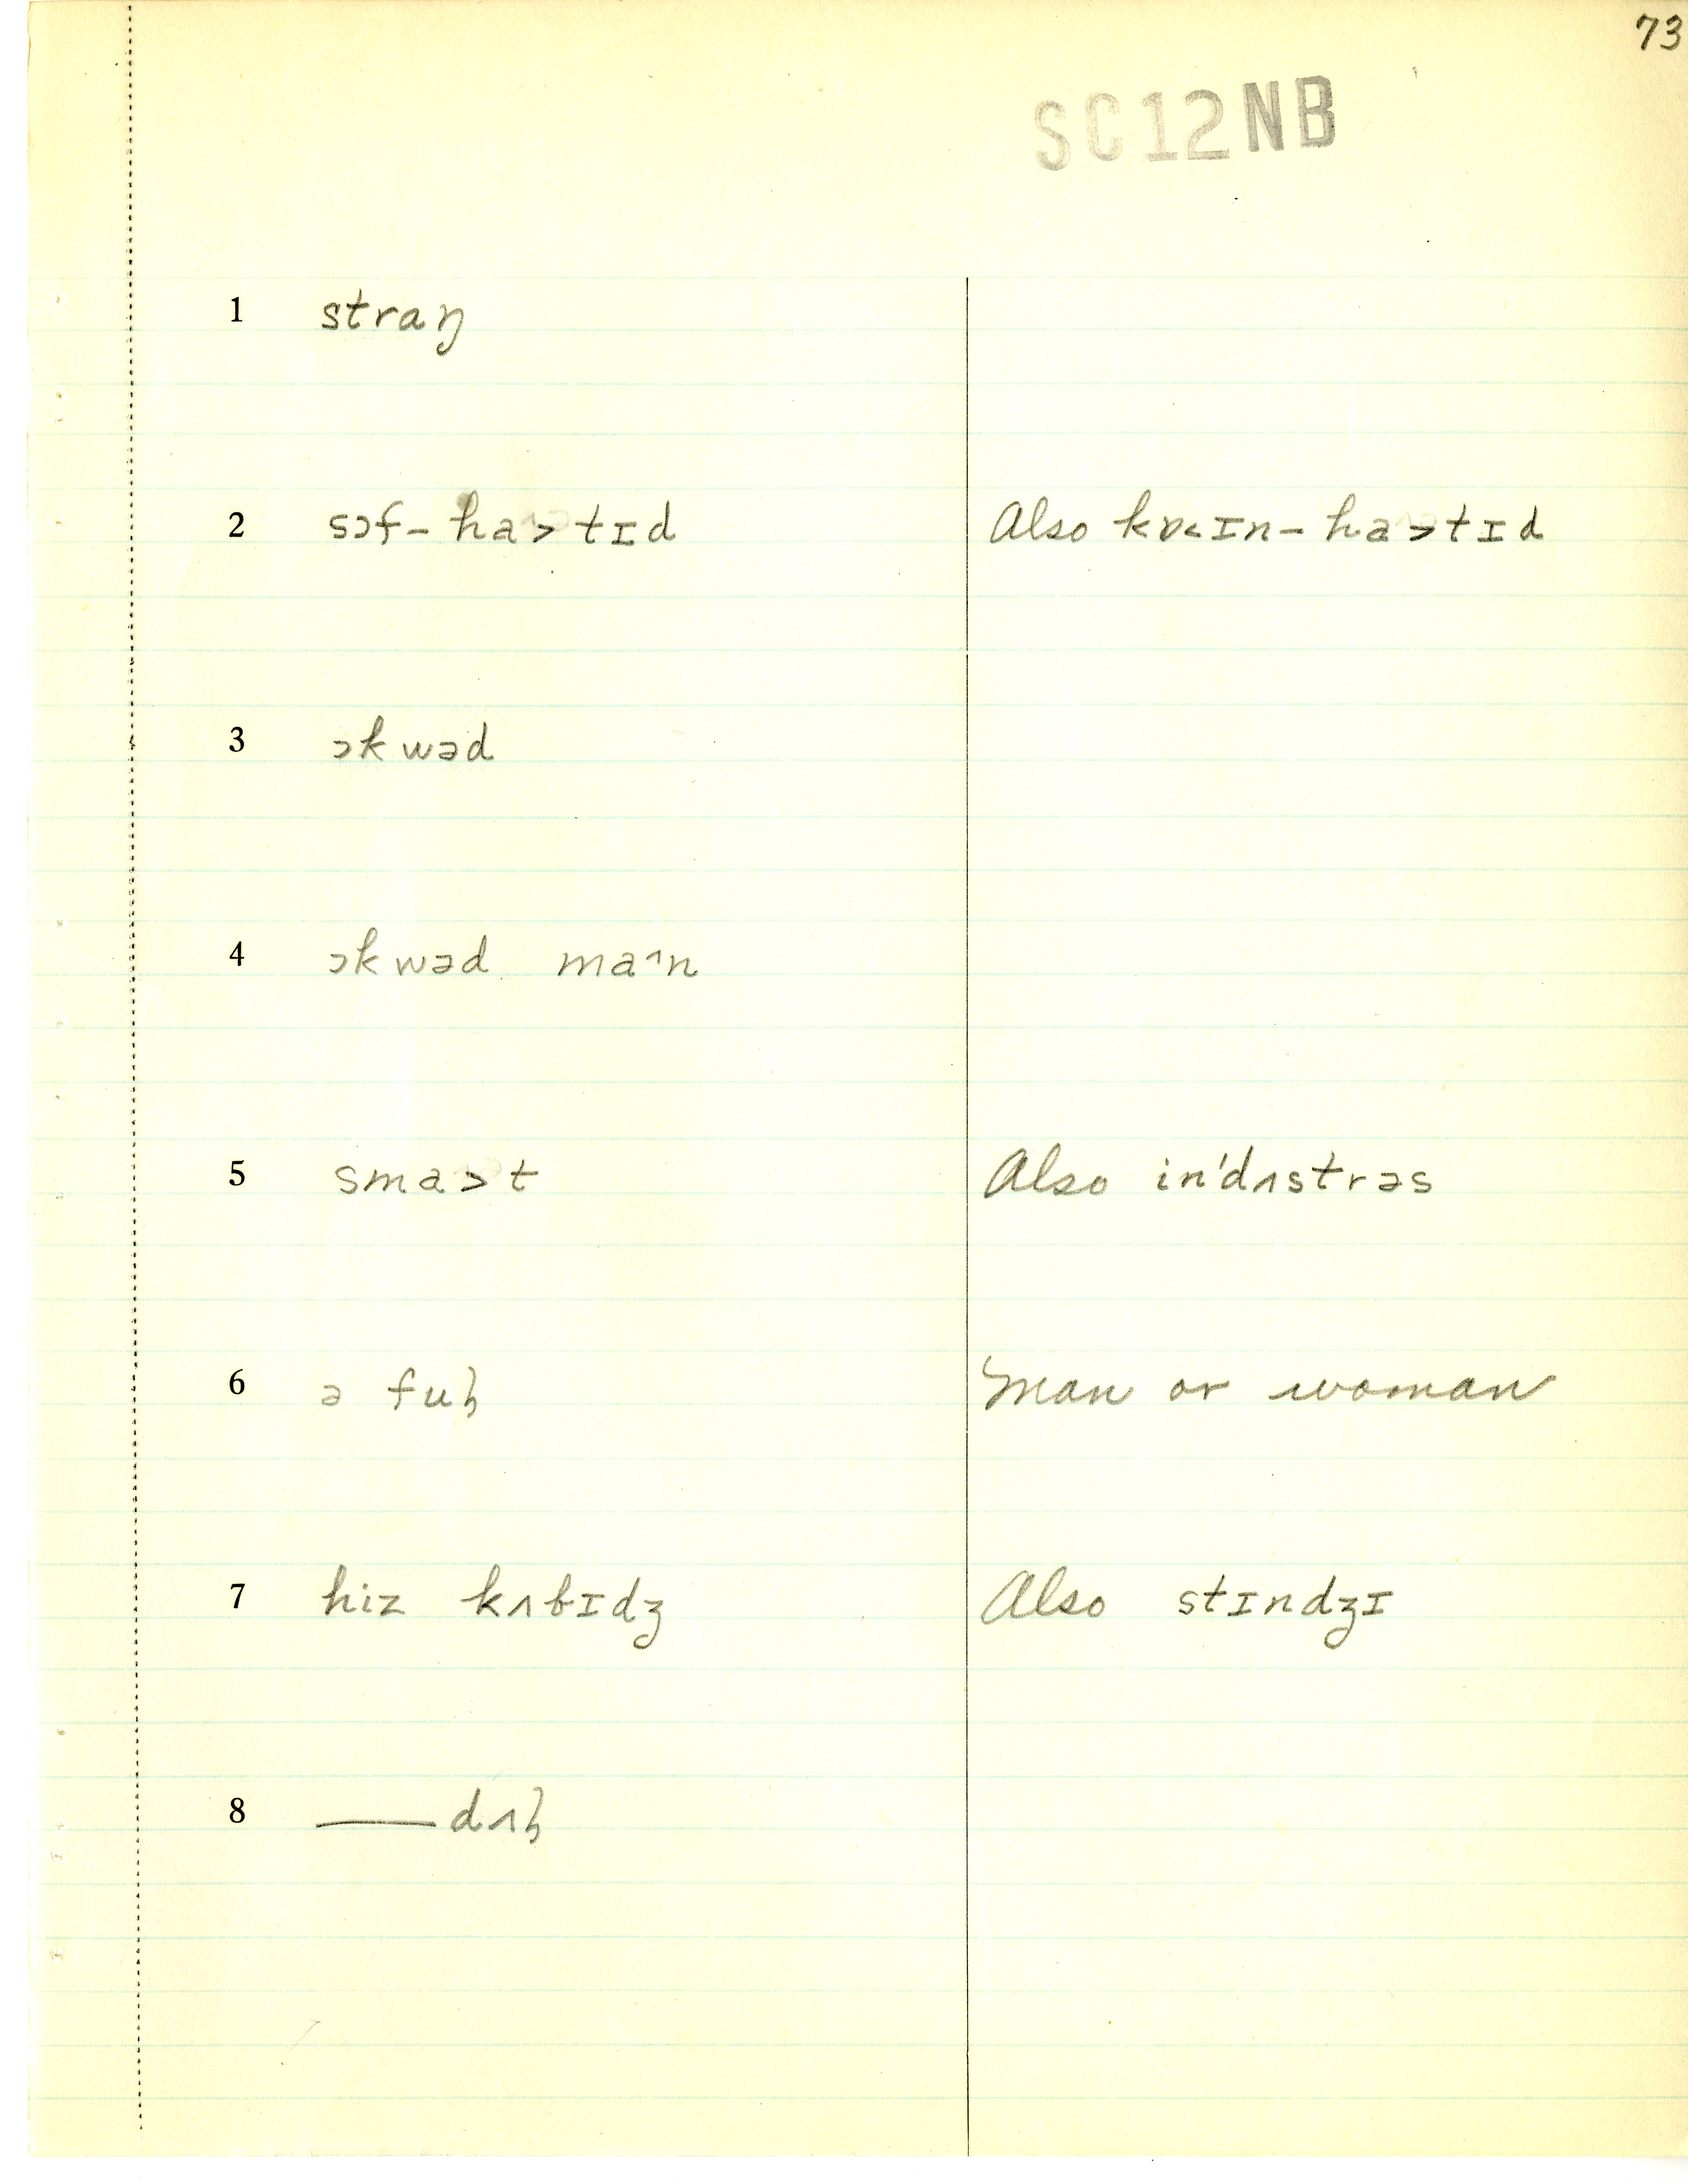 73
SC12NB
1 straŋ
2 sɔf-ha>tɪd Also kɒ<ɪn-ha>tɪd
3 ɔkwəd
4 ɔkwəd ma^n
5 sma>t Also in'dʌstrəs
6 ə ful̡ Man or woman
7 hiz kʌbɪdʒ Also stɪndʒɪ
8 —— dʌl̡